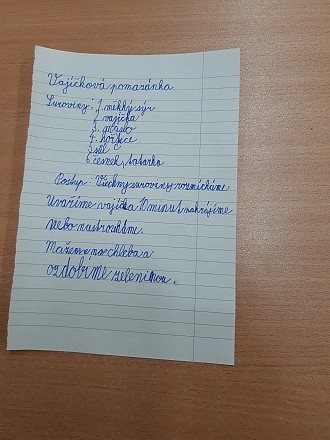 Vajíčková pomazánka
Suroviny: 1. měkký sýr
2. vajíčka
3. máslo
4. hořčice
5. sůl
6. česnek, tatarka
Postup: Všechny suroviny rozmícháme
Uvaříme vajíčka 10 minut nakrájíme
nebo nastrouháme.
Mažeme na chleba a
ozdobíme zeleninou.